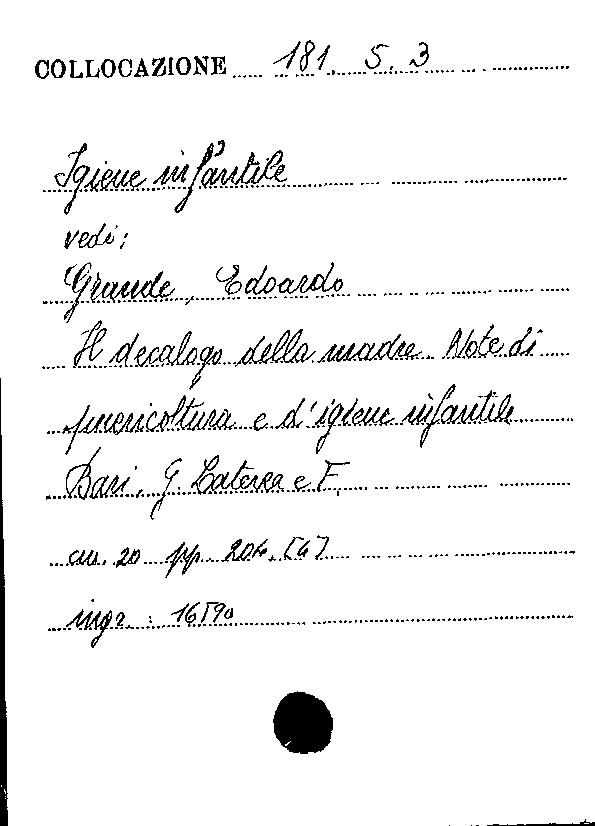 COLLOCAZIONE 181. 5. 3
Igiene infantile
vedi:
Grande, Edoardo
Il decalogo della madre. Note di
puericoltura e d'igiene infantile
Bari. G. Laterza e F.
cm. 20 pp. 204. [4]
ingr. : 16590